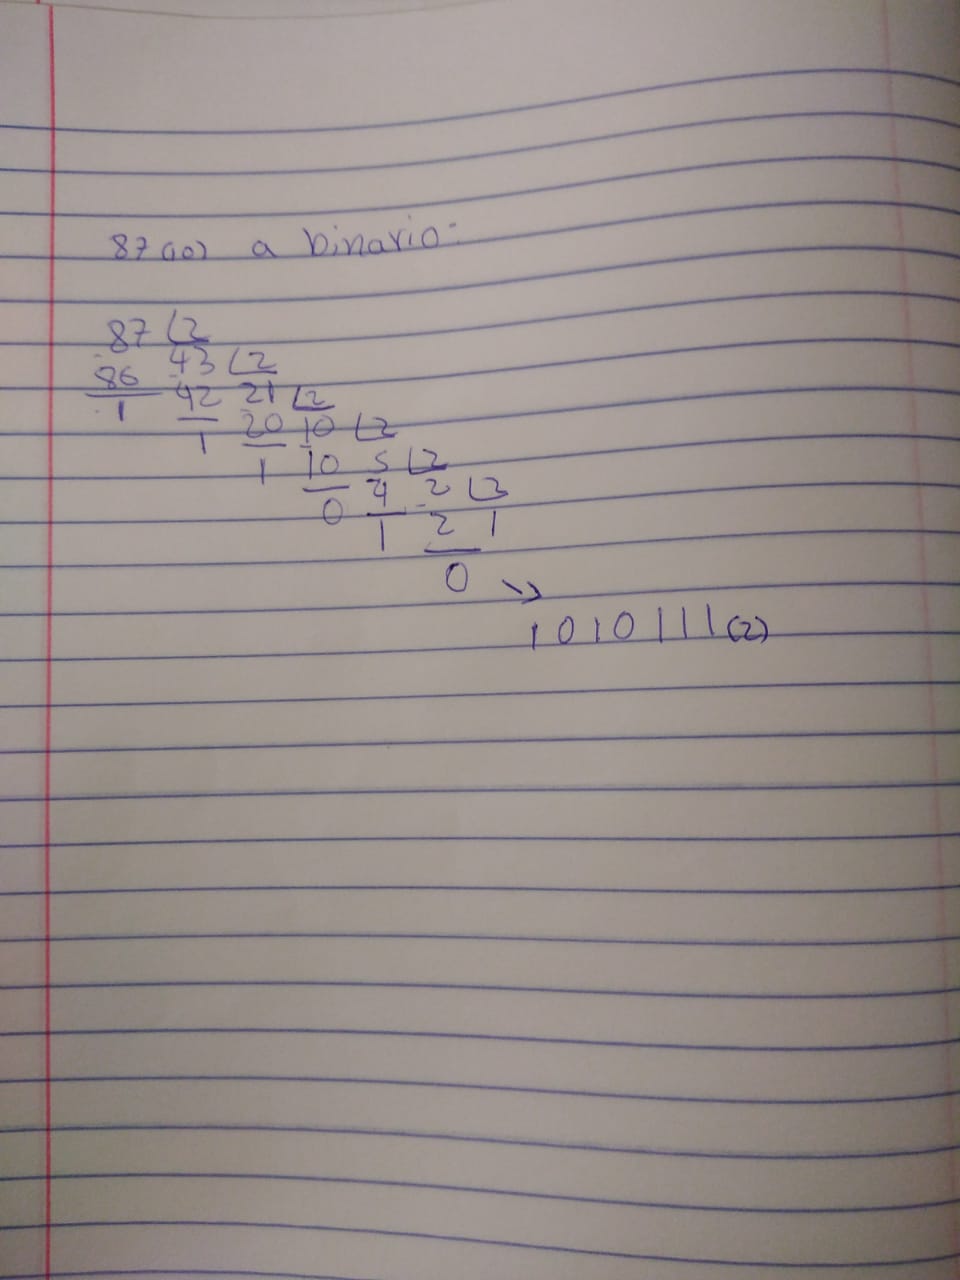 87(10) a binario:
87 2
86 43 2
1 42 21 2
1 20 10 2
1 10 5 2
0 4 2 2
1 2 1
0
1010111(2)